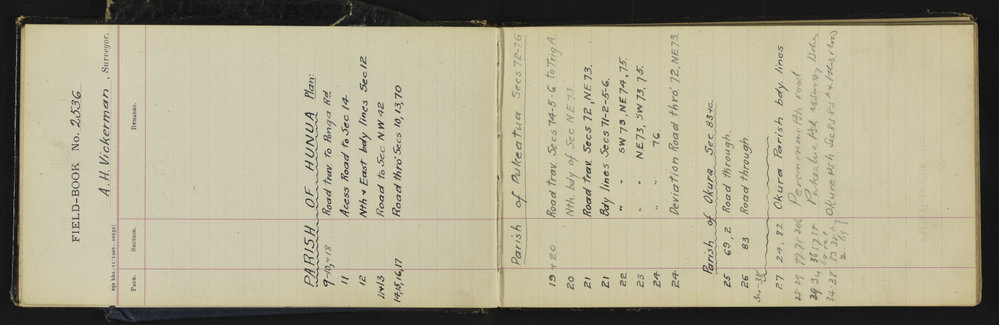 FIELD-BOOK No. 2536
A. H. Vickerman, Surveyor.
PAGE. SECTION. REMARKS.
PARISH OF HUNUA Plan:
9-10,+18 Road trav. to Ponga Rd
11 Acess Road to Sec 14.
12 Nth + East bdy lines Sec 12
12+13 Road to Sec NW 42
14,15,16,17 Road thro' Secs 10,13,70
Parish of Pukeatua Secs 72-76
19+20 Road trav. Secs 74-5-6 to Trig A
20 Nth. bdy of Sec NE 73.
21 Road trav. Secs 72, NE 73.
21 Bdy lines Secs 71-2-5-6.
22 " " SW 73, NE 74, 75.
23 " " NE 73, SW 73, 75.
24 " " 76
24 Deviation Road thro' 72, NE 73
Parish of Okura Sec 83 etc.
25 69, 2 Road through.
26 83 Road through.
34-38
27 24, 82 Okura Parish bdy. lines
28 29 Psh road
29 34 Psh
34-38 Okura Psh